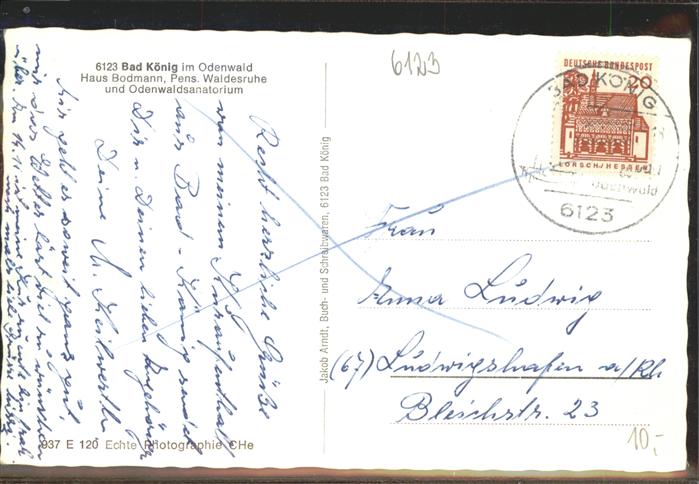 6123 Bad König im Odenwald
Haus Bodmann, Pens. Waldesruhe
und Odenwaldsanatorium
6123
DEUTSCHE BUNDESPOST
20
LORSCH/HESSEN
BAD KÖNIG
Odenwald
6123
Recht herzliche Grüße
von meinem Kuraufenthalt
aus Bad-König sendet
Dir u. Deinen lieben Angehörigen
Deine
Mir geht es soweit ganz gut
Jakob Arndt, Buch- und Schreibwaren, 6123 Bad König
Frau
Anna Ludwig
(67) Ludwigshafen a/Rh
Bleichstr. 23
937 E 120 Echte Photographie CHe
10,-